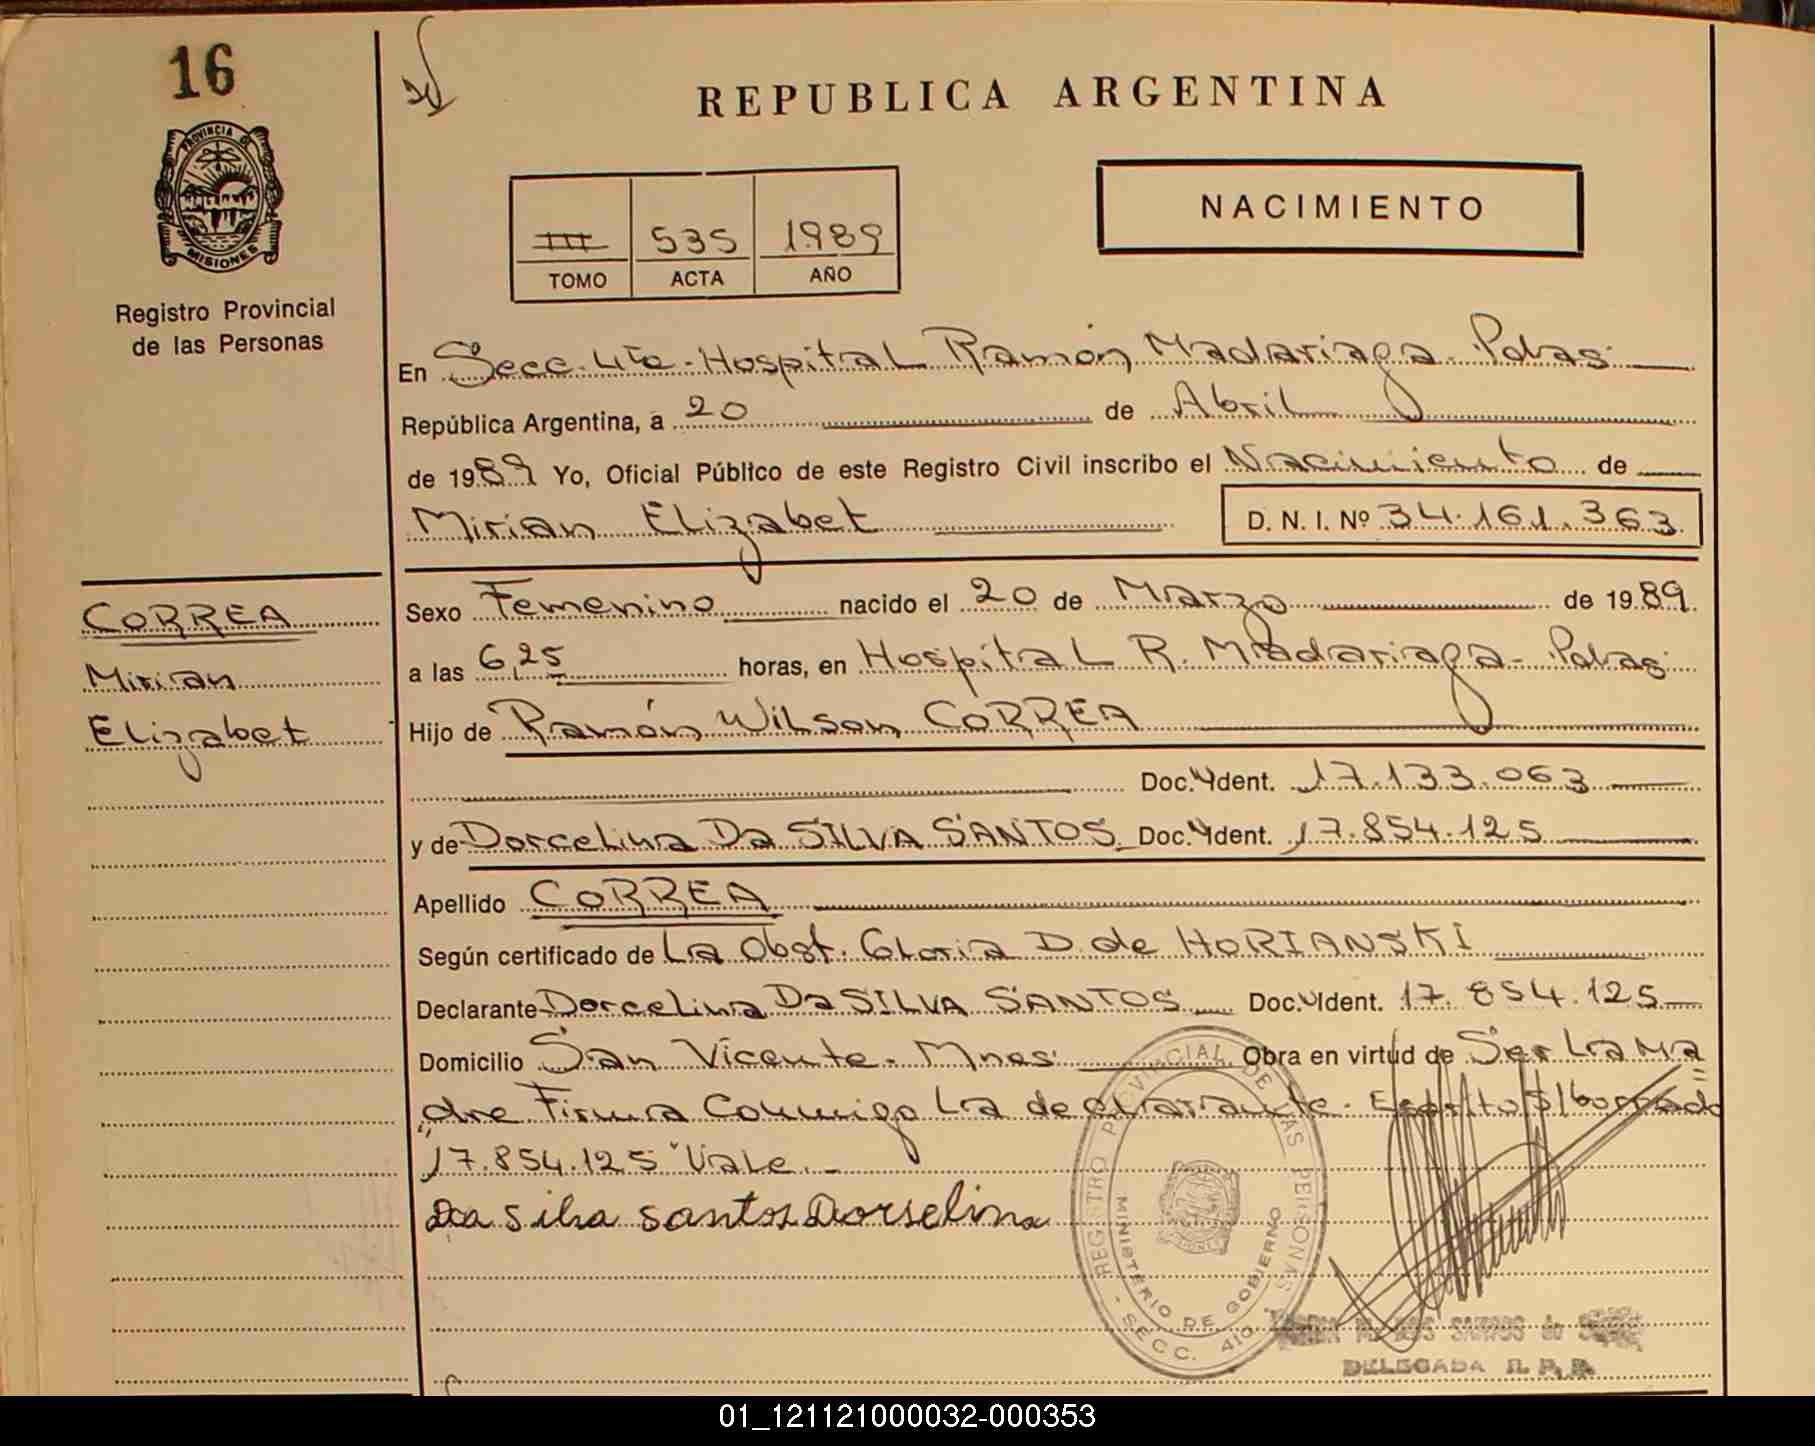 16
REPUBLICA ARGENTINA
PROVINCIA DE
MISIONES
Registro Provincial
de las Personas
III 535 1989
TOMO ACTA AÑO
NACIMIENTO
En Secc. 4ta - Hospital Ramón Madariaga - Pdas
República Argentina, a 20 de Abril
de 1989 Yo, Oficial Público de este Registro Civil inscribo el Nacimiento de
Mirian Elizabet D. N. I. Nº 34.161.363
CORREA
Mirian
Elizabet
Sexo Femenino nacido el 20 de Marzo de 1989
a las 6,25 horas, en Hospital R. Madariaga - Pdas
Hijo de Ramón Wilson CORREA
Doc. Ident. 17.133.063
y de Dorcelina Da SILVA SANTOS Doc. Ident. 17.854.125
Apellido CORREA
Según certificado de La Obst. Gloria D. de HORIANSKI
Declarante Dorcelina Da SILVA SANTOS Doc. Ident. 17.854.125
Domicilio San Vicente - Mnes Obra en virtud de Ser La Ma
dre Firma Conmigo La declarante - Escrito S/borrado
"17.854.125" Vale. -
Da silva santos Dorselina
REGISTRO PROVINCIAL DE LAS PERSONAS
MINISTERIO DE GOBIERNO
SECC. 4ta.
SANTOS de
DELEGADA R. P. P.
01_121121000032-000353